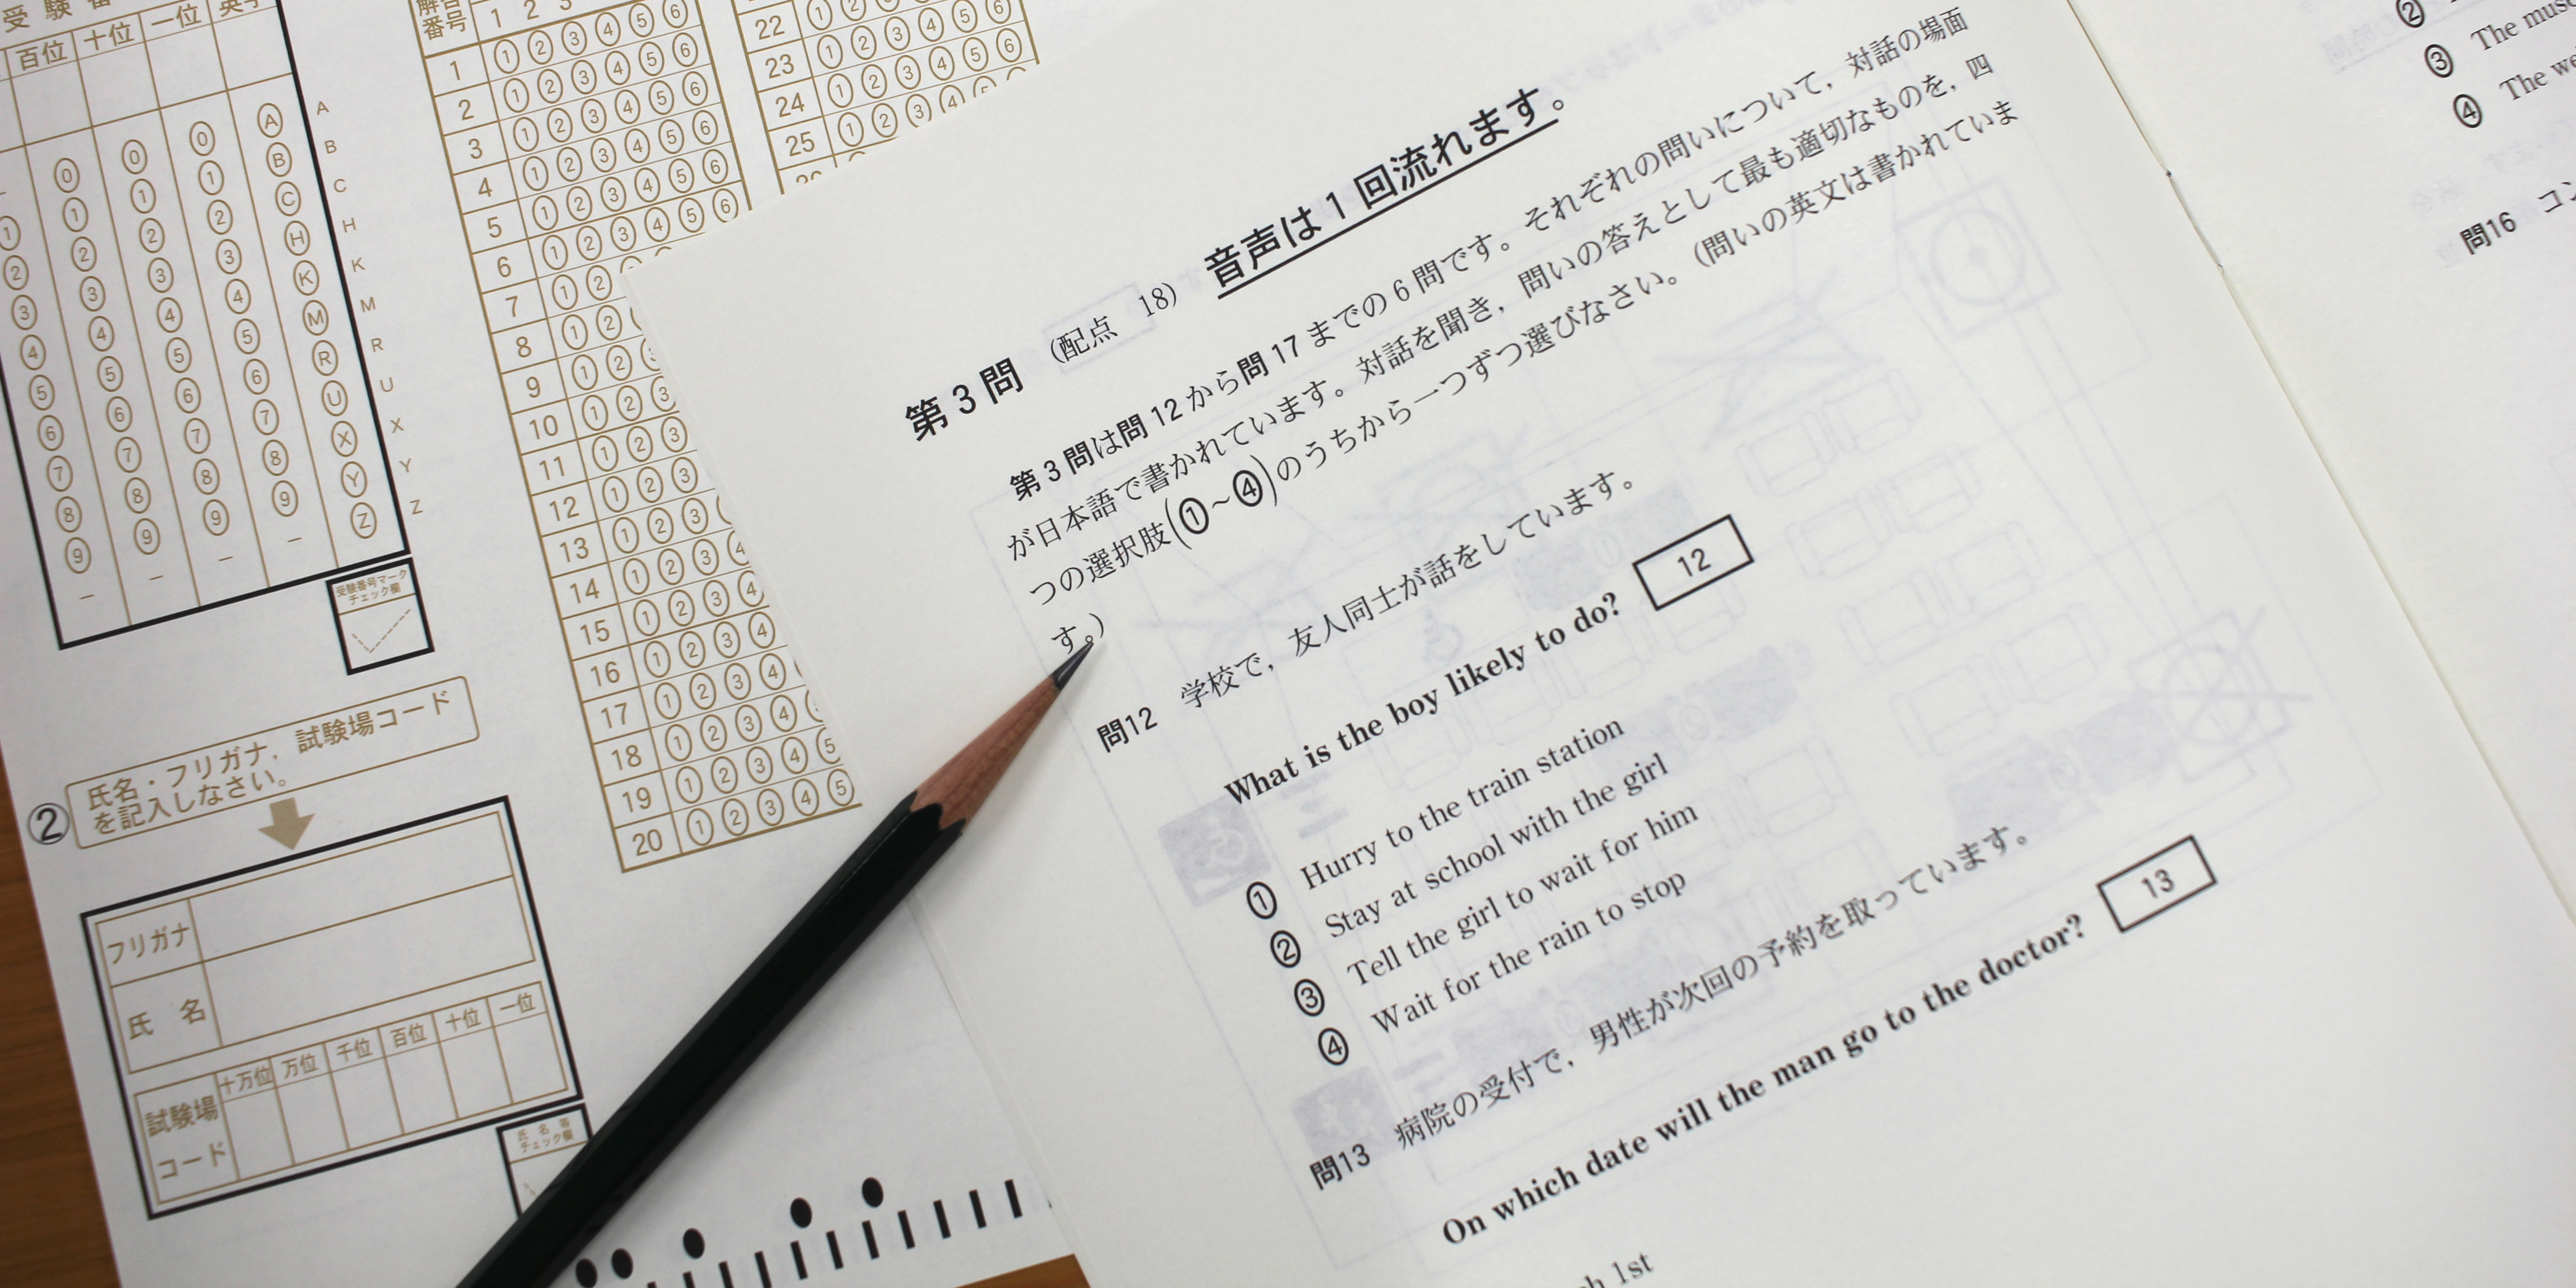 百位 十位 一位
0 0 0 A A
1 1 1 1 B B
2 2 2 2 C C
3 3 3 3 H H
4 4 4 4 K K
5 5 5 5 M M
6 6 6 6 R R
7 7 7 7 U U
8 8 8 8 X X
9 9 9 9 Y Y
Z Z
受験番号マーク
チェック欄
②
氏名・フリガナ，試験場コード
を記入しなさい。
フリガナ
氏 名
試験場
コード
十万位 万位 千位 百位 十位 一位
氏 名 等
チェック欄
番号
1 2 3
1 ① ② ③ ④ ⑤ ⑥
2 ① ② ③ ④ ⑤ ⑥
3 ① ② ③ ④ ⑤ ⑥
4 ① ② ③ ④ ⑤ ⑥
5 ① ② ③ ④ ⑤ ⑥
6 ① ②
7 ① ②
8 ① ②
9 ① ②
10 ① ② ③
11 ① ② ③
12 ① ② ③
13 ① ② ③
14 ① ② ③ ④
15 ① ② ③ ④
16 ① ② ③ ④
17 ① ② ③ ④
18 ① ② ③ ④
19 ① ② ③ ④ ⑤
20 ① ② ③ ④ ⑤
22 ① ② ③ ④ ⑤ ⑥
23 ① ② ③ ④ ⑤ ⑥
24 ① ② ③ ④
25 ① ② ③
第3問 （配点 18） 音声は1回流れます。
第3問は問12から問17までの6問です。それぞれの問いについて，対話の場面
が日本語で書かれています。対話を聞き，問いの答えとして最も適切なものを，四
つの選択肢(①～④)のうちから一つずつ選びなさい。（問いの英文は書かれていま
す。）
問12 学校で，友人同士が話をしています。
What is the boy likely to do? 12
① Hurry to the train station
② Stay at school with the girl
③ Tell the girl to wait for him
④ Wait for the rain to stop
問13 病院の受付で，男性が次回の予約を取っています。
On which date will the man go to the doctor? 13
1st
②
③ The
④ The
問16